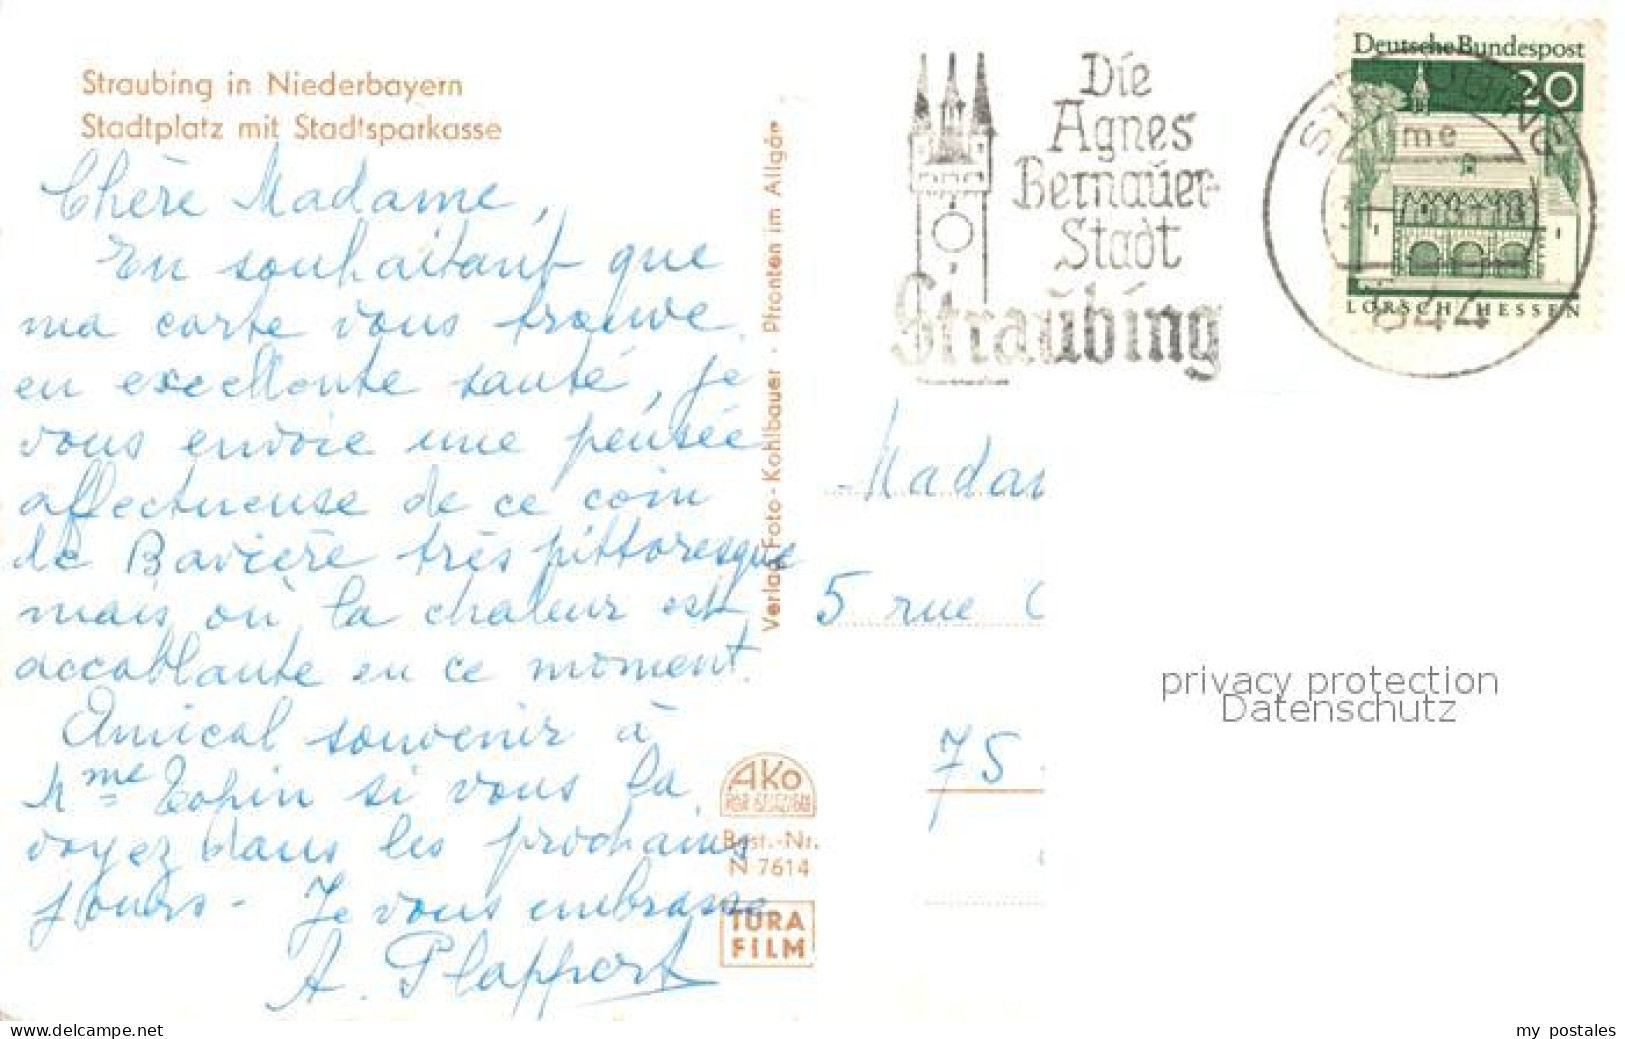 Straubing in Niederbayern
Stadtplatz mit Stadtsparkasse
Chère Madame,
En souhaitant que
ma carte vous trouve
en excellente santé, je
vous envoie une pensée
affectueuse de ce coin
de Bavière très pittoresque
mais où la chaleur est
accablante en ce moment.
Amical souvenir à
Mme Topin si vous la
voyez dans les prochains
jours - Je vous embrasse
A. Plappert
Verlag Foto-Kohlbauer · Pfronten im Allgäu
AKO
Best.-Nr.
N 7614
TURA
FILM
Die
Agnes
Bernauer-
Stadt
Straubing
Deutsche Bundespost
20
LORSCH/HESSEN
STRAUBING
me
844
Madam
5 rue
75
privacy protection
Datenschutz
www.delcampe.net
my postales